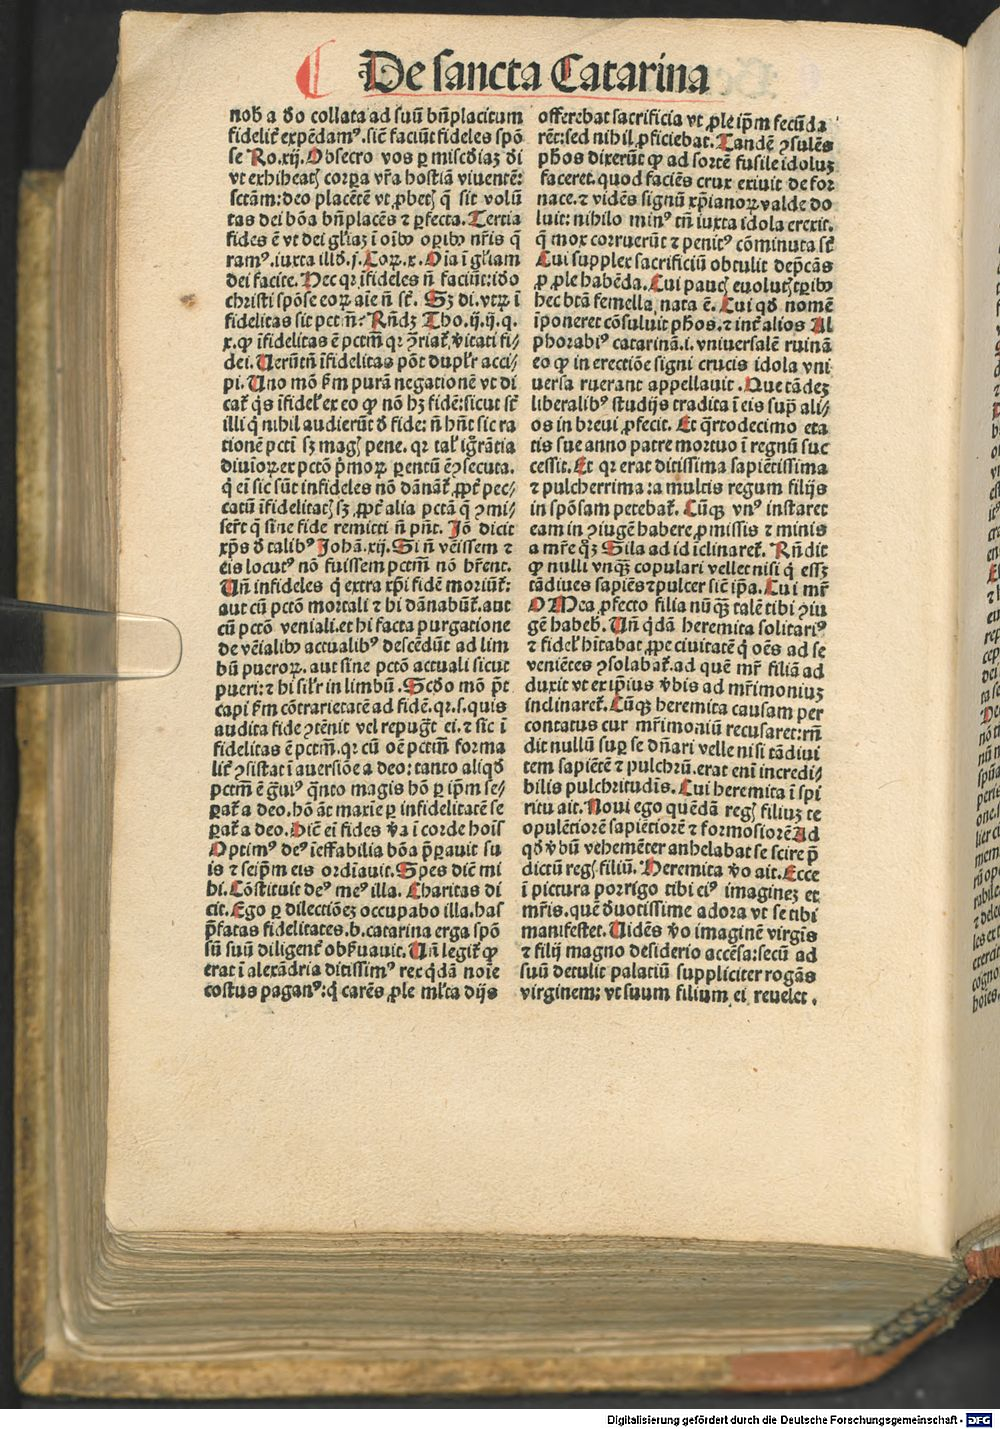 De sancta Catarina
nob̄ a deo collata ad suū bn̄placitum
fidelit᷑ expēdamꝰ. sic̄ faciūt fideles spō
se Ro. xij. Obsecro vos ꝑ mīscdiaꝫ di
vt exhibeatꝭ corꝑa vr̄a hostiā viuentē:
sctām: deo placētē vt ꝓbetꝭ q̄ sit volū
tas dei bōa bn̄placēs ⁊ ꝑfecta. Tertia
fides ē vt dei gl'iaꝫ ī oībꝰ oꝑibꝰ nr̄is q̄
ramꝰ. iuxta illd. j. Coꝝ. x. Oīa ī gl'iam
dei facite. Hec qꝛ īfideles n̄ faciūt: ido
christi spōse eoꝝ aīe n̄ st̄. Sꝫ di. vtꝝ ī
fidelitas sit pctm̄: Rn̄dꝫ Tho. ij. ij. q.
x. ꝙ īfidelitas ē pctm̄ qꝛ ꝯriat᷑ v̓itati fi
dei. Uerūtn̄ īfidelitas pōt dupl'r acci
pi. Uno mō ẜm purā negationē vt di
cat᷑ q̓s īfidel' ex eo ꝙ nō hꝫ fidē: sicut st̄
illi q̓ nihil audierūt d̓ fide: n̄ hn̄t sic ra
tionē pctī sꝫ magꝭ pene. qꝛ tal' igr̄ātia
diuioꝝ ex pctō pͥmoꝝ ꝑentū ē ꝯsecuta.
q̓ ei sic sūt infideles nō dānāt᷑ ꝓpt᷑ pec
catū īfidelitatꝭ sꝫ ꝓpt᷑ alia pctā q̄ ꝯmi
ser̄t q̄ sine fide remitti n̄ pn̄t. Iō dicit
xp̄s d̓ talibꝰ Johā. xij. Si n̄ vēissem ⁊
eis locutꝰ nō fuissem pctm̄ nō hr̄ent.
Un̄ infideles q̓ extra xp̄i fidē moriūt᷑:
aut cū pctō mortali ⁊ hi dānabūt᷑. aut
cū pctō veniali. et hi facta purgatione
de vēialibꝰ actualibꝰ descēdūt ad lim
bū pueroꝝ. aut sine pctō actuali sicut
pueri: ⁊ hi sil'r in limbū. Scdo mō pt̄
capi ẜm cōtrarietatē ad fidē. qꝛ. s. quis
audita fide ꝯtēnit vel repugͣt ei. ⁊ sic ī
fidelitas ē pctm̄. qꝛ cū oē pctm̄ forma
lit᷑ ꝯsistat ī auersiōe a deo: tanto aliqd
pctm̄ ē gͣuiꝰ qͣnto magis hō ꝑ ipm̄ se
ꝑat᷑ a deo. hō āt maxīe ꝑ infidelitatē se
ꝑat᷑ a deo. Hic̄ ei fides v̓a ī corde hoīs
Optimꝰ deꝰ īeffabilia bōa pͣꝑauit su
is ⁊ seipm̄ eis ordīauit. Spes dic̄ mi
hi. Cōstituit deꝰ meꝰ illa. Charitas di
cit. Ego ꝑ dilectiōeꝫ occupabo illa. has
p̄fatas fidelitates. b. catarina erga spō
sū suū diligent᷑ obẜuauit. Un̄ legit᷑ ꝙ
erat ī alexādria ditissimꝰ rex qͥdā noīe
costus paganꝰ: q̓ carēs ꝓle ml'ta dijs
offerebat sacrificia vt ꝓle ipm̄ fecūda
rēt: sed nihil ꝓficiebat. Tandē ꝯsulēs
ph̄os dixerūt ꝙ ad sortē fusile idoluꝫ
faceret. quod faciēs crux exiuit de for
nace. ⁊ vidēs signū xp̄ianoꝝ valde do
luit: nihilo minꝰ tn̄ iuxta idola erexit.
q̄ mox corruerūt ⁊ penitꝰ cōminuta st̄
Cui supplex sacrificiū obtulit dep̄cās
ꝑ ꝓle habēda. Cui paucꝭ euolutꝭ tꝑibꝰ
hec btā femella nata ē. Cui qd nomē
īponeret cōsuluit ph̄os. ⁊ int᷑ alios Al
phorabiꝰ catarinā. i. vniuersalē ruinā
eo ꝙ in erectiōe signi crucis idola vni
uersa ruerant appellauit. Que tādeꝫ
liberalibꝰ studijs tradita ī eis supͣ ali
os in breui ꝓfecit. Et qͣrtodecimo eta
tis sue anno patre mortuo ī regnū suc
cessit. Et qꝛ erat ditissima sapiētissima
⁊ pulcherrima: a multis regum filijs
in spōsam petebat᷑. Cūqꝫ vnꝰ instaret
eam in ꝯiugē habere ꝓmissis ⁊ minis
a mr̄e qͣꝫ Sila ad id īclinaret᷑. Rn̄dit
ꝙ nulli vnqͣꝫ copulari vellet nisi q̓ essꝫ
tādiues sapiēs ⁊ pulcer sic̄ ip̄a. Cui mr̄
O Mea ꝓfecto filia nūqͣꝫ talē tibi ꝯiu
gē habeb̓. Un̄ qͥdā heremita solitariꝰ
⁊ fidel' hītabat ꝓpe ciuitatē q̓ oēs ad se
veniētes ꝯsolabat᷑. ad quē mr̄ filiā ad
duxit vt ex ipīus v̓bis ad mr̄imoniuꝫ
inclinaret᷑. Cūqꝫ heremita causam per
contatus cur mr̄imoniū recusaret: rn̄
dit nullū suꝑ se dn̄ari velle nisi tādiui
tem sapiētē ⁊ pulchrū. erat eni incredi
bilis pulchritudīs. Cui heremita ī spi
ritu ait. Noui ego quēdā regꝭ filiuꝫ te
opulētiorē sapiētiorē ⁊ formosiorē Ad
qd v̓bū vehemēter anhelabat se scire p̄
dictū regꝭ filiū. Heremita v̓o ait. Ecce
ī pictura porrigo tibi eiꝰ imagineꝫ et
mr̄is. quē d̓uotissime adora vt se tibi
manifestet. Uidēs v̓o imaginē virgīs
⁊ filij magno desiderio accēsa: secū ad
suū detulit palatiū suppliciter rogās
virginem: vt suum filium ei reuelet.
Digitalisierung gefördert durch die Deutsche Forschungsgemeinschaft - DFG